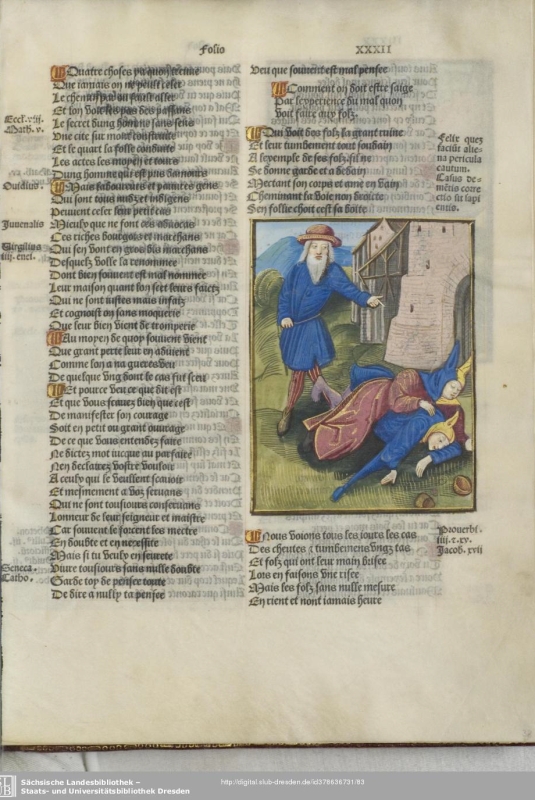 Folio XXXII
Quatre choses
Que iamais on ne peult celer
Le chemin par ou
Et lon voit les pas des passans
Le secret dung homme sans sens
Une cite sur mont construite
Et le quart la folle conduite
Les actes les moyen et tours
Dung homme qui est pris damours
Mais laboureurs et pauures gens
Qui sont tous nudz et indigens
Peuuent celer leur petit cas
Mieulx que ne font ces aduocas
Ces riches bourgois et marchans
Qui sen vont en gros dis marchans
Desquelz volle la renommee
Dont bien souuent est mal nommee
Leur maison quant lon scet leurs faictz
Qui ne sont iustes mais infaitz
Et cognoist on sans moquerie
Que leur bien vient de tromperie
Au moyen de quoy souuent vient
Que grant perte leur en aduient
Comme lon a na gueres veu
De quelque vng dont le cas fut sceu
Et pource veu ce que dit est
Et que vous scauez bien que cest
De manifester son courage
Soit en petit ou grant ouurage
De ce que vous entendez faire
Ne dictez mot iucque au parfaire
Nen declairez vostre vouloir
A ceulx qui le veullent scauoir
Et mesmement a voz seruans
Qui ne sont tousiours conseruans
Lonneur de leur seigneur et maistre
Car souuent se forcent les mectre
En doubte et en necessite
Mais si tu veulx en seurete
Viure tousiours sans nulle doubte
Garde toy de penser toute
De dire a nully ta pensee
Eccl. viij.
Math. v.
Ouidius.
Juuenalis
Virgilius
iiij. enei.
Seneca.
Catho.
Veu que souuent est mal pensee
Comment on doit estre saige
Par lexperience du mal quon
Voit faire aux folz.
Qui voit des folz la grant ruine
Et leur tumbement tout soubdain
A lexemple de ses folz, sil ne
Se donne garde et a desdain
Mectant son corps et ame en vain
Cheminant la voie non droicte
Sen follie choit cest sa boite
Felix quez
faciūt alie-
na pericula
cautum.
Casus de-
mētis corre
ctio sit sapi
entis.
Nous voions tous les iours les cas
Des cheutes & tumbemens vngz tas
Et folz qui ont leur main brisee
Lors en faisons vne risee
Mais les folz sans nulle mesure
En rient et nont iamais heure
Prouerbi.
iiij. & xv.
Jacob. xvij
Sächsische Landesbibliothek –
Staats- und Universitätsbibliothek Dresden
http://digital.slub-dresden.de/id376636731/83